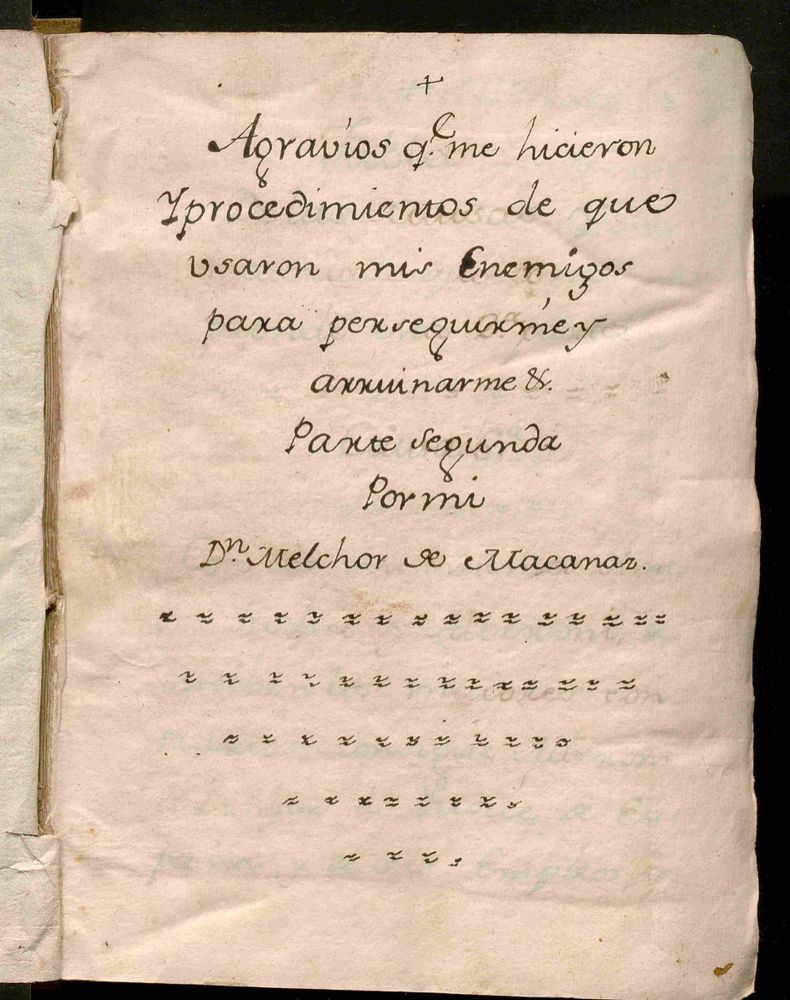 +
Agravios q.e me hicieron
Yprocedimientos de que
vsaron mis Enemigos
para perseguirme y
arruinarme &.
Parte segunda
Por mi
D.n Melchor de Macanaz.